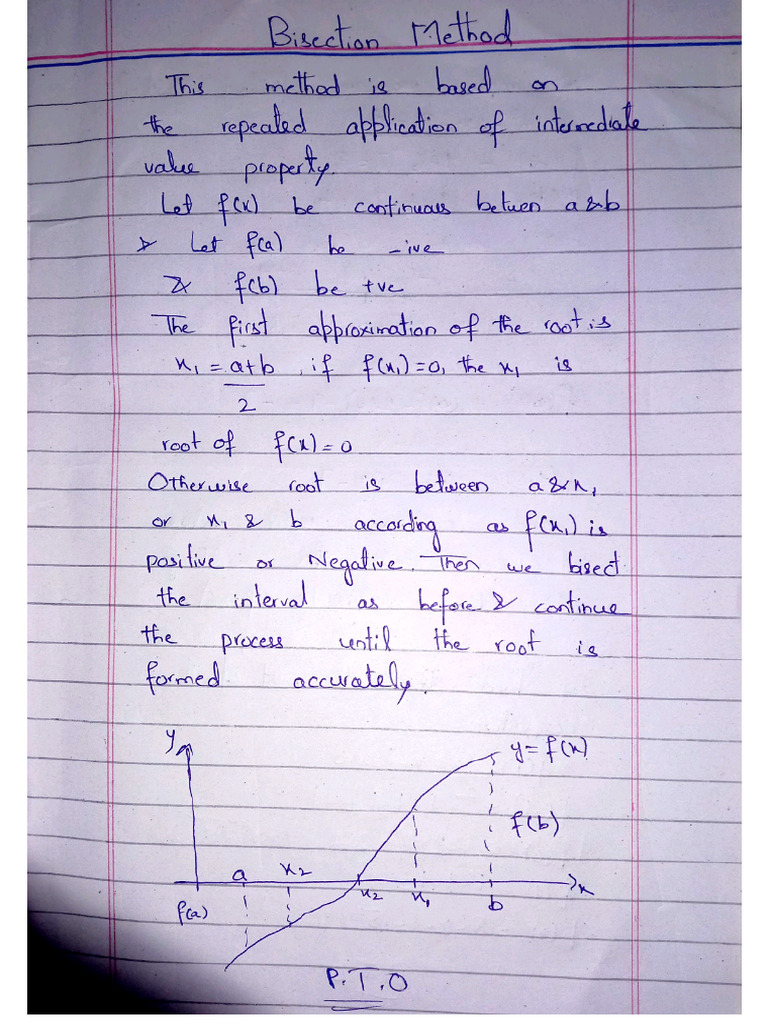 Bisection Method
This method is based on
the repeated application of intermediate
value property.
Let f(x) be continuous betwen a & b
Let f(a) be -ive
& f(b) be +ve
The first approximation of the root is
x₁ = a+b , if f(x₁)=0, the x₁ is
2
root of f(x)=0
Otherwise root is between a & x₁
or x₁ & b according as f(x₁) is
positive or Negative. Then we bisect
the interval as before & continue
the process until the root is
formed accurately.
y
y = f(x)
f(b)
a x2
x
f(a)
x2 x₁ b
P.T.O